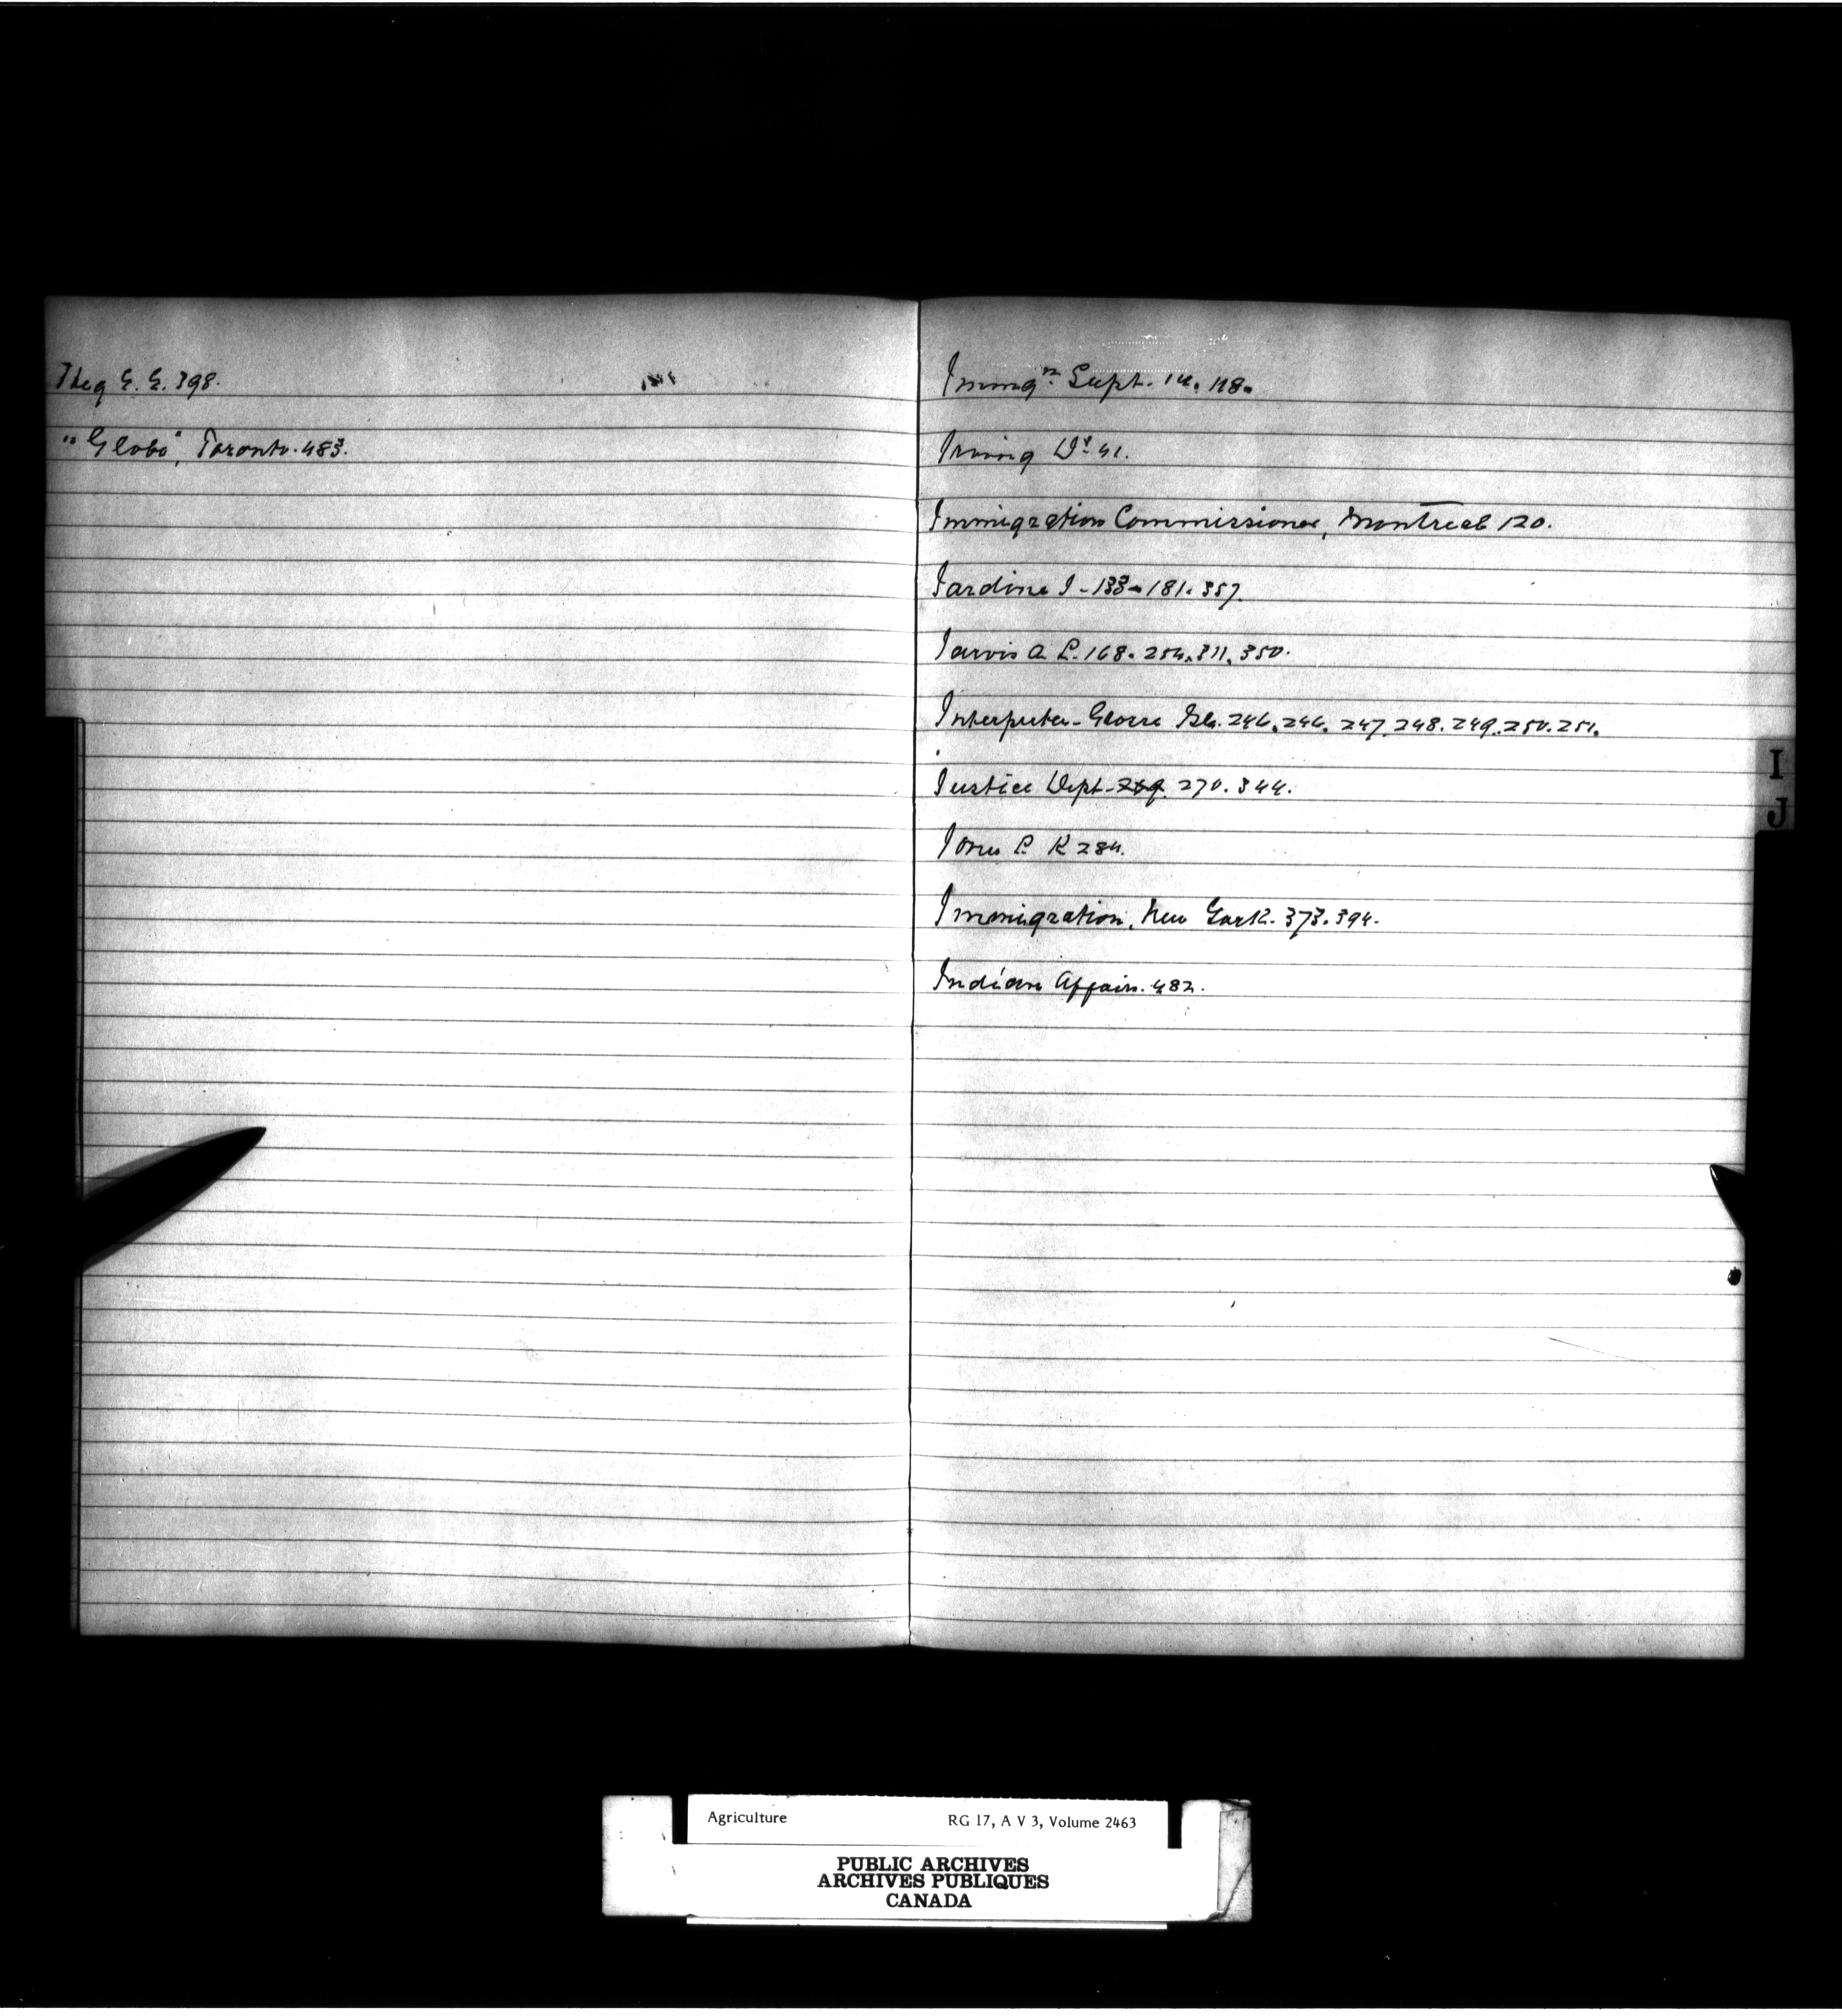 E. E. 398.
"Globe", Toronto. 483.
Immign. Supt. 14. 118.
Irving Dr 41.
Immigration Commissioner, Montreal 120.
Jardine J - 133 - 181. 357.
Jarvis A. L. 168. 254. 311. 350.
Interpreter - Grosse Isle. 246. 246. 247. 248. 249. 250. 251.
Justice Dept - 269. 270. 344.
Jones P. K 284.
Immigration, New York. 373. 394.
Indian Affairs. 482.
I
J
Agriculture RG 17, A V 3, Volume 2463
PUBLIC ARCHIVES
ARCHIVES PUBLIQUES
CANADA